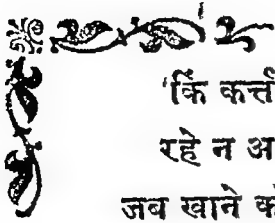 'किं कर्त्त
रहे न अ
जब खाने क